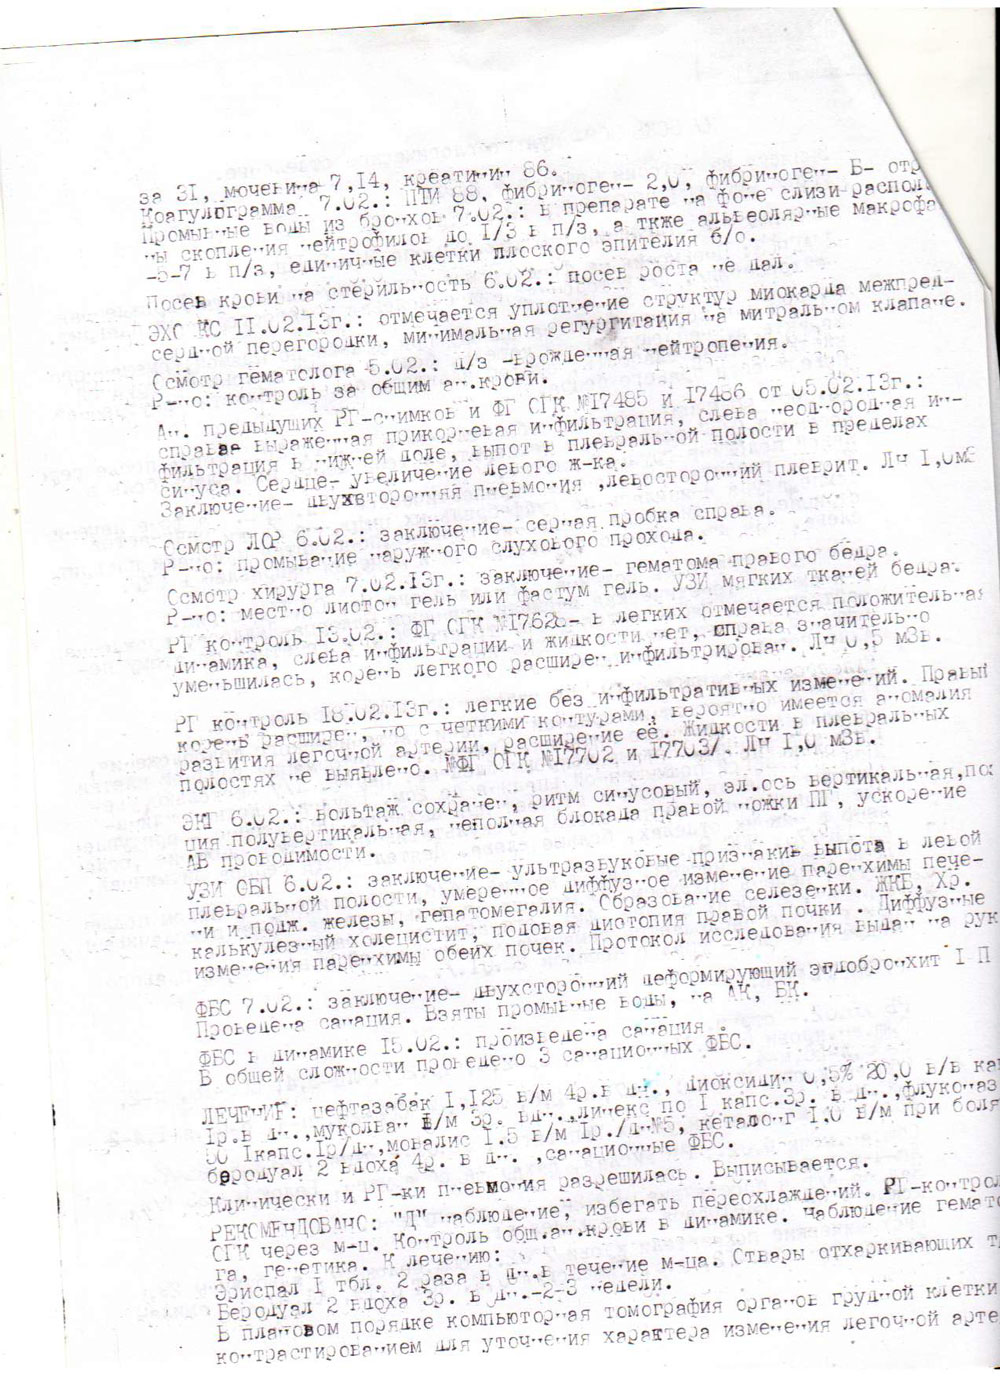 за 31, мочевина 7,14, креатинин 86.
Коагулограмма 7.02.: ПТИ 88, фибриноген- 2,0, фибриноген- Б- отр
Промывные воды из бронхов 7.02.: в препарате на фоне слизи распол.
ны скопления нейтрофилов до 1/3 в п/з, а ткже альвеолярные макрофа
-5-7 в п/з, единичные клетки плоского эпителия б/о.
Посев крови на стерильность 6.02.: посев роста не дал.
ЭХО КС II.02.13г.: отмечается уплотнение структур миокарда межпред-
сердной перегородки, минимальная регургитация на митральном клапане.
Осмотр гематолога 5.02.: д/з -врожденная нейтропения.
Р-но: контроль за общим ан.крови.
Ан. предыдущих РГ-снимков и ФГ ОГК №17485 и 17486 от 05.02.13г.:
справа выраженная прикорневая инфильтрация, слева неоднородная ин-
фильтрация в нижней доле, выпот в плевральной полости в пределах
синуса. Сердце- увеличение левого ж-ка.
Заключение- двухвторонняя пневмония ,левосторонний плеврит. Лн 1,0мЗ
Осмотр ЛОР 6.02.: заключение- серная пробка справа.
Р-но: промывание наружного слухового прохода.
Осмотр хирурга 7.02.13г.: заключение- гематома правого бедра.
Р-но: местно лиотон гель или фастум гель. УЗИ мягких тканей бедра.
РГ контроль 13.02.: ФГ ОГК №17628- в легких отмечается положительная
динамика, слева инфильтрации и жидкости нет, справа значительно
уменьшилась, корень легкого расширен, инфильтрирован. Лн 0,5 мЗв.
РГ контроль 18.02.13г.: легкие без инфильтративных изменений. Правый
корень расширен, но с четкими контурами, вероятно имеется аномалия
развития легочной артерии, расширение её. Жидкости в плевральных
полостях не выявлено. №ФГ ОГК №17702 и 17703/. Лн 1,0 мЗв.
ЭКГ 6.02.: вольтаж сохранен, ритм синусовый, эл.ось вертикальная,поз
ция полувертикальная, неполная блокада правой ножки ПГ, ускорение
АВ проводимости.
УЗИ ОБП 6.02.: заключение- ультразвуковые признакив выпота в левой
плевральной полости, умеренное диффузное изменение паренхимы пече-
ни и подж. железы, гепатомегалия. Образование селезенки. ЖКБ, Хр.
калькулезный холецистит, подовая дистопия правой почки . Диффузные
изменения паренхимы обеих почек. Протокол исследования выдан на рук
ФБС 7.02.: заключение- двухсторонний деформирующий эндобронхит I П
Проведена санация. Взяты промывные воды, на АК, БК.
ФБС в динамике 15.02.: произведена санация .
В общей сложности проведено 3 санационных ФБС.
ЛЕЧЕНИЕ: цефтазабак 1,125 в/м 4р.в дн., диоксидин 0,5% 20,0 в/в кап
1р.в дн.,муколван в/м 3р. вдн.,линекс по 1 капс.3р. в дн.,флуконаз
50 1капс.1р/дн,мовалис 1.5 в/м 1р./д№5, кеталонг 1.0 в/м при боля
беродуал 2 вдоха 4р. в дн. ,санационные ФБС.
Клинически и РГ-ки пневмония разрешилась. Выписывается.
РЕКОМЕНДОВАНО: "Д" наблюдение, избегать переохлаждений. РГ-контрол
ОГК через м-ц. Контроль общ.ан.крови в динамике. Наблюдение гемато
га, генетика. К лечению:
Эриспал 1 тбл. 2 раза в дн.в течение м-ца. Отвары отхаркивающих тр
Беродуал 2 вдоха 3р. в дн.-2-3 недели.
В плановом порядке компьюторная томография органов грудной клетки
контрастированием для уточнения характера изменения легочной арте